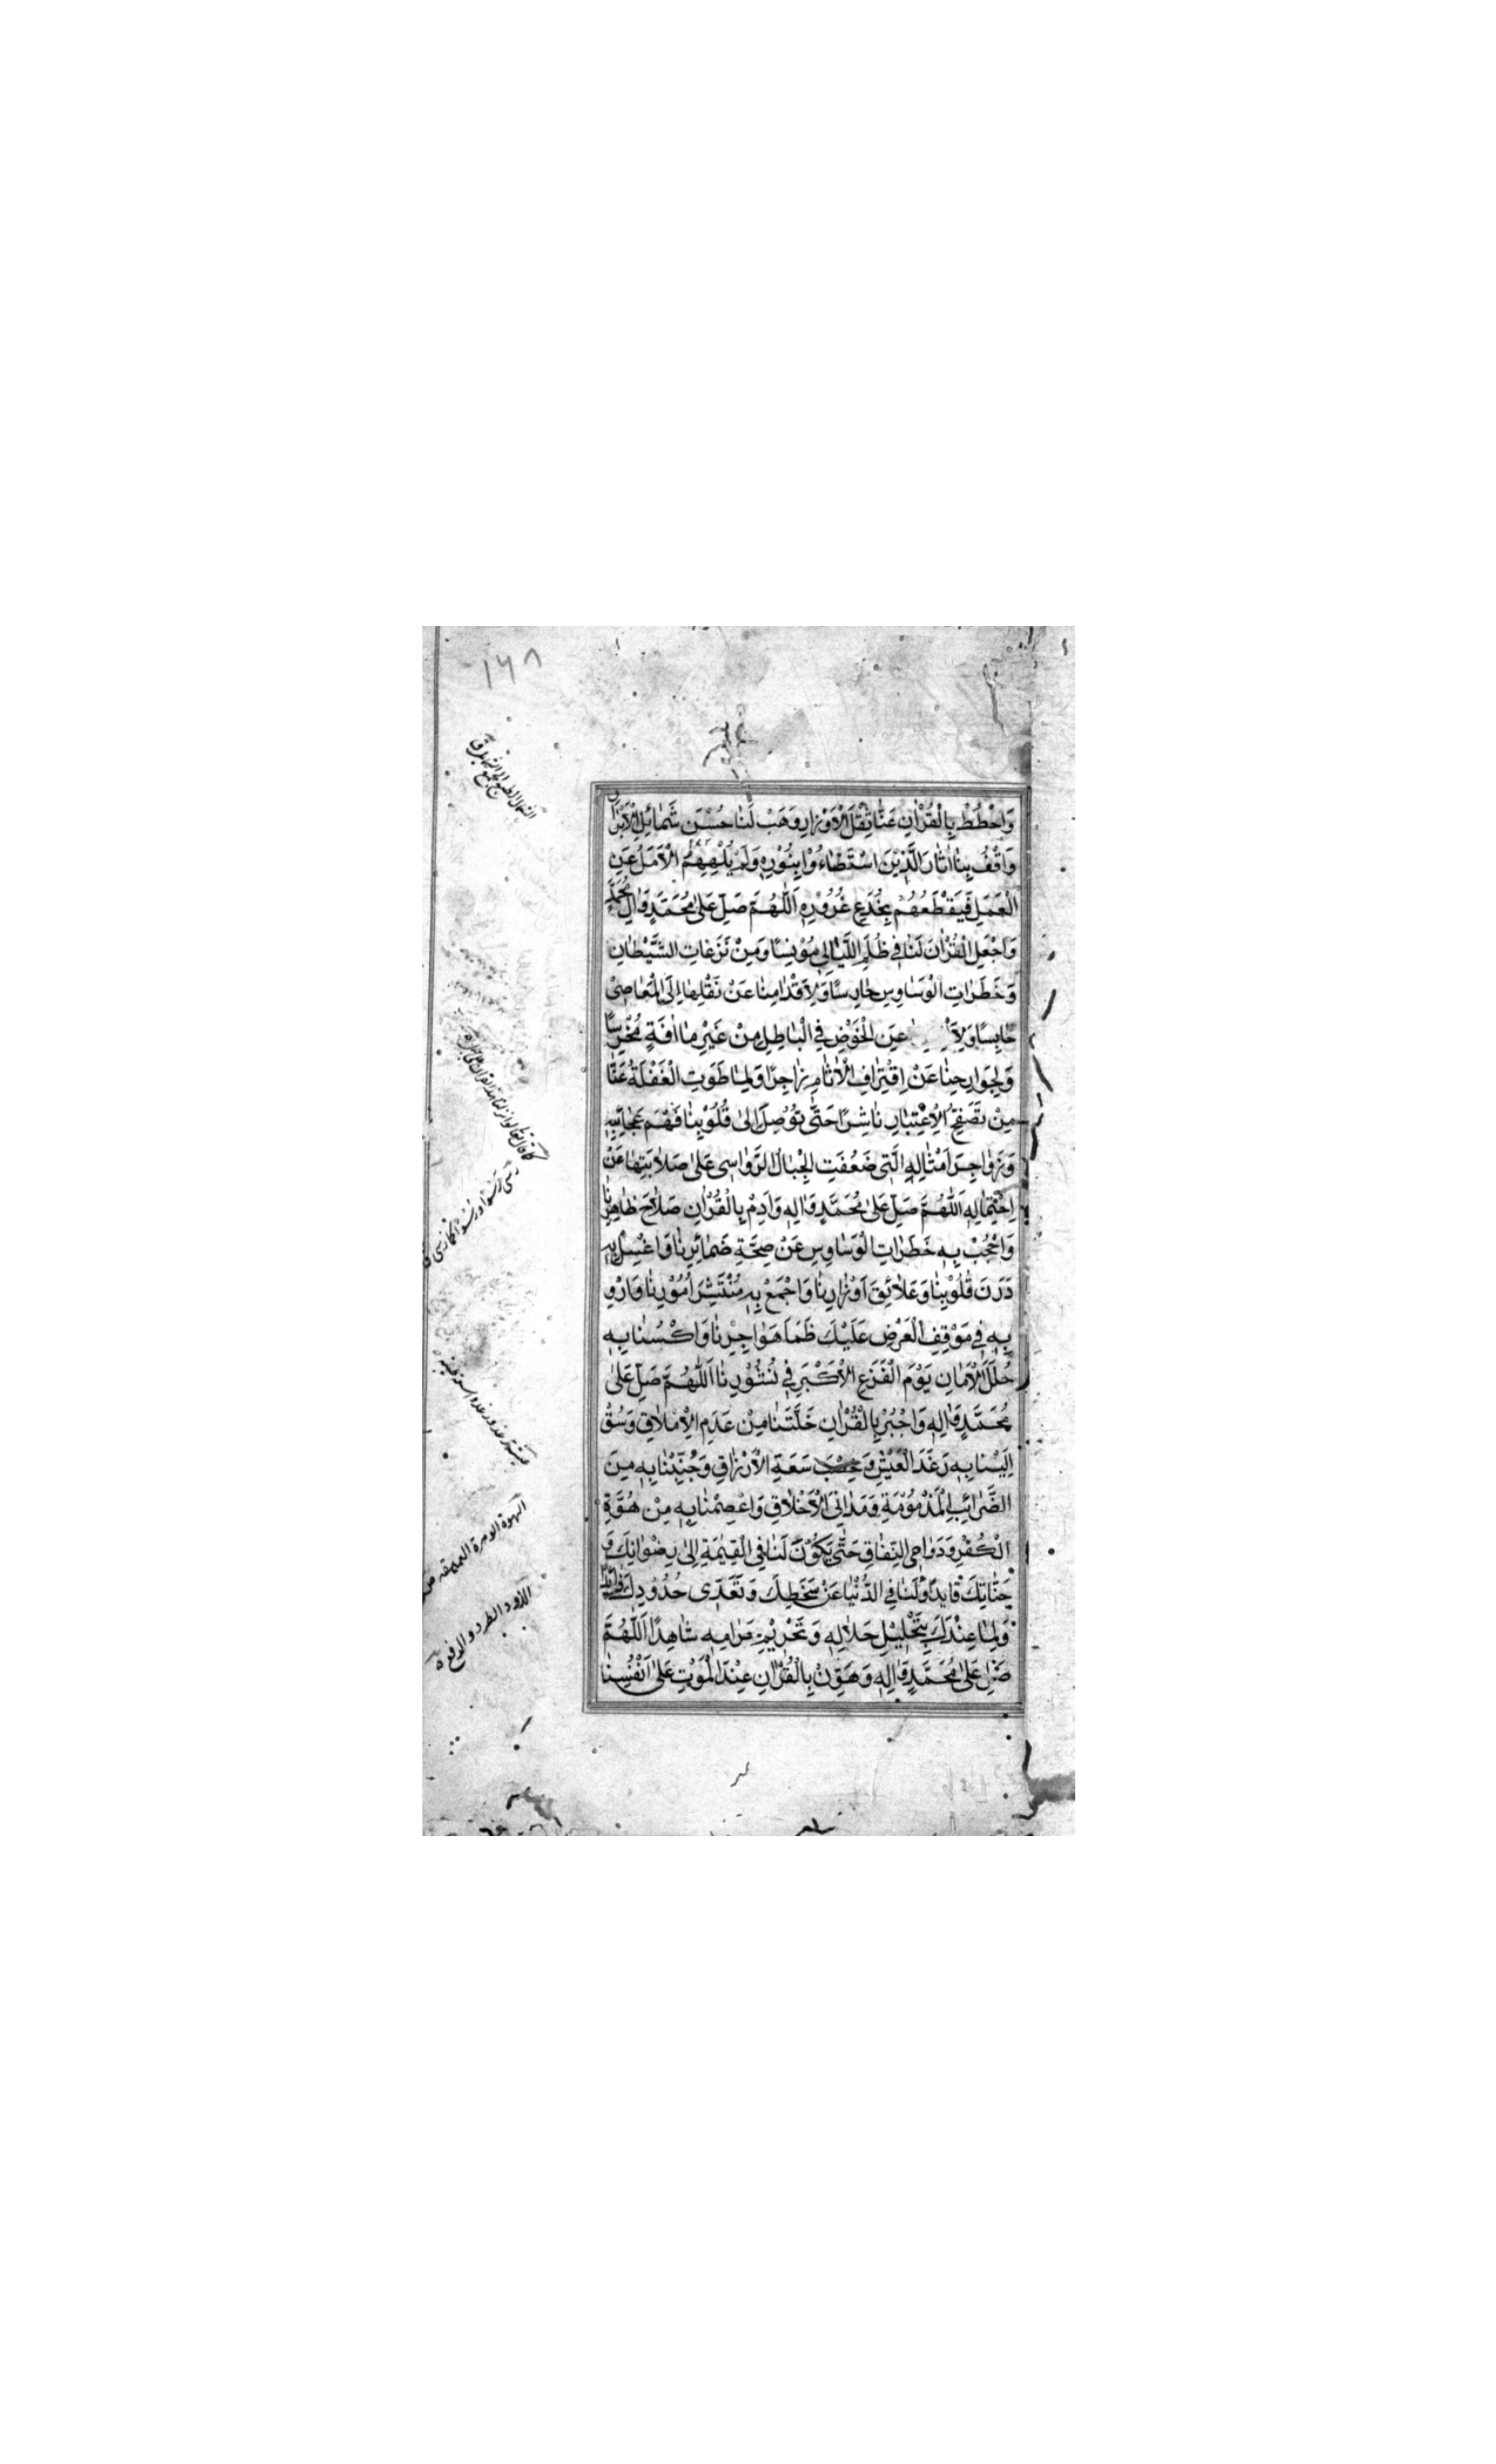 ١٦٨
وَاحْطُطْ بِالْقُرْاٰنِ عَنَّا ثِقْلَ الْاَوْزَارِ وَهَبْ لَنَا حُسْنَ شَمَائِلِ الْاَبْرَارِ
وَاقْفُ بِنَا اٰثَارَ الَّذِيْنَ اسْتَضَاءُوْا بِنُوْرِهٖ وَلَمْ يُلْهِهِمُ الْاَمَلُ عَنِ
الْعَمَلِ فَيَقْطَعَهُمْ بِخُدَعِ غُرُوْرِهٖ اَللّٰهُمَّ صَلِّ عَلٰى مُحَمَّدٍ وَاٰلِ مُحَمَّدٍ
وَاجْعَلِ الْقُرْاٰنَ لَنَا فِي ظُلَمِ اللَّيَالِى مُوْنِسًا وَمِنْ نَزَغَاتِ الشَّيْطَانِ
وَخَطَرَاتِ الْوَسَاوِسِ حَارِسًا وَلِاَقْدَامِنَا عَنْ نَقْلِهَا اِلَى الْمَعَاصِىْ
حَابِسًا وَلِاَ عَنِ الْخَوْضِ فِي الْبَاطِلِ مِنْ غَيْرِ مَا اٰفَةٍ مُخْرِسًا
وَلِجَوَارِحِنَا عَنْ اِقْتِرَافِ الْاٰثَامِ زَاجِرًا وَلِمَا طَوَتِ الْغَفْلَةُ عَنَّا
مِنْ تَصَفُّحِ الْاِعْتِبَارِ نَاشِرًا حَتّٰى تُوْصِلَ اِلٰى قُلُوْبِنَا فَهْمَ عَجَائِبِهٖ
وَزَوَاجِرَ اَمْثَالِهِ الَّتِى ضَعُفَتِ الْجِبَالُ الرَّوَاسِى عَلٰى صَلَابَتِهَا عَنْ
اِحْتِمَالِهٖ اَللّٰهُمَّ صَلِّ عَلٰى مُحَمَّدٍ وَاٰلِهٖ وَاَدِمْ بِالْقُرْاٰنِ صَلَاحَ ظَاهِرِنَا
وَاحْجُبْ بِهٖ خَطَرَاتِ الْوَسَاوِسِ عَنْ صِحَّةِ ضَمَائِرِنَا وَاغْسِلْ بِهٖ
دَرَنَ قُلُوْبِنَا وَعَلَائِقَ اَوْزَارِنَا وَاجْمَعْ بِهٖ مُنْتَشِرَ اُمُوْرِنَا وَارْوِ
بِهٖ فِي مَوْقِفِ الْعَرْضِ عَلَيْكَ ظَمَاَ هَوَاجِرِنَا وَاكْسُنَا بِهٖ
حُلَلَ الْاَمَانِ يَوْمَ الْفَزَعِ الْاَكْبَرِ فِي نُشُوْرِنَا اَللّٰهُمَّ صَلِّ عَلٰى
مُحَمَّدٍ وَاٰلِهٖ وَاجْبُرْ بِالْقُرْاٰنِ خَلَّتَنَا مِنْ عَدَمِ الْاِمْلَاقِ وَسُقْ
اِلَيْنَا بِهٖ رَغَدَ الْعَيْشِ وَخِصْبَ سَعَةِ الْاَرْزَاقِ وَجَنِّبْنَا بِهٖ مِنَ
الضَّرَائِبِ الْمَذْمُوْمَةِ وَمَدَانِىَ الْاَخْلَاقِ وَاعْصِمْنَا بِهٖ مِنْ هُوَّةِ
الْكُفْرِ وَدَوَاعِى النِّفَاقِ حَتّٰى يَكُوْنَ لَنَا فِي الْقِيٰمَةِ اِلٰى رِضْوَانِكَ وَ
جِنَانِكَ قَايِدًا وَلَنَا فِي الدُّنْيَا عَنْ سَخَطِكَ وَتَعَدِّى حُدُوْدِكَ ذَائِدًا
وَلِمَا عِنْدَكَ بِتَحْلِيْلِ حَلَالِهٖ وَتَحْرِيْمِ حَرَامِهٖ شَاهِدًا اَللّٰهُمَّ
صَلِّ عَلٰى مُحَمَّدٍ وَاٰلِهٖ وَهَوِّنْ بِالْقُرْاٰنِ عِنْدَ الْمَوْتِ عَلٰى اَنْفُسِنَا
الهوة الوهدة العميقه ص
الذود الطرد والدفع